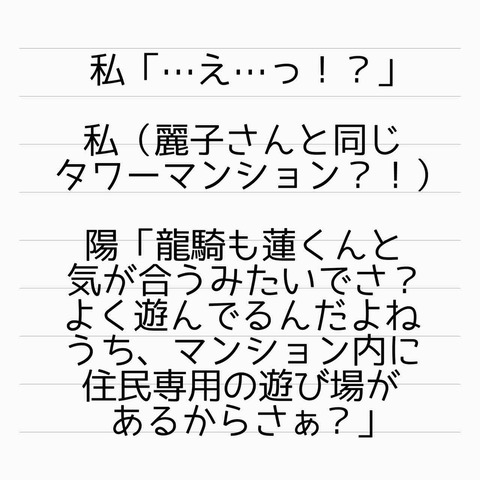 私「…え…っ！？」
私（麗子さんと同じ
タワーマンション？！）
陽「龍騎も蓮くんと
気が合うみたいでさ？
よく遊んでるんだよね
うち、マンション内に
住民専用の遊び場が
あるからさぁ？」